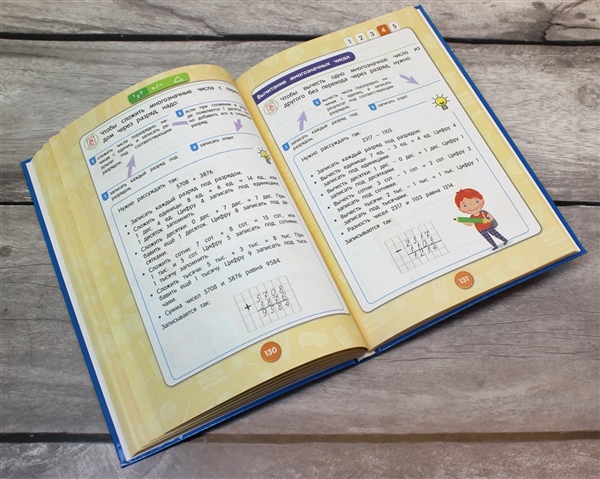 1 2 3 +/-
Чтобы сложить многозначные числа с перехо-
дом через разряд, надо:
записать каждый разряд под
разрядом;
записать ответ.
Нужно рассуждать так:
5708 + 3876.
• Записать каждый разряд под разрядом.
• Сложить единицы: 8 ед. + 6 ед. = 14 ед., или
1 дес. 4 ед. Цифру 4 записать под единицами,
1 десяток запомнить.
• Сложить десятки: 0 дес. + 7 дес. = 7 дес. При-
бавить ещё 1 десяток. Цифру 8 записать под де-
сятками.
• Сложить сотни: 7 сот. + 8 сот. = 15 сот., или
1 тыс. и 5 сот. Цифру 5 записать под сотнями,
1 тысячу запомнить.
• Сложить тысячи: 5 тыс. + 3 тыс. = 8 тыс. При-
бавить ещё 1 тысячу. Цифру 9 записать под тыся-
чами.
• Сумма чисел 5708 и 3876 равна 9584.
Записывается так:
5708
+ 3876
9584
130
1 2 3 4 5
Вычитание многозначных чисел
Чтобы вычесть одно многозначное число из
другого без перехода через разряд, нужно:
записать каждый разряд под
разрядом;
записать ответ.
Нужно рассуждать так:
2317 – 1103.
• Записать каждый разряд под разрядом.
• Вычесть единицы: 7 ед. – 3 ед. = 4 ед. Цифру 4
записать под единицами.
• Вычесть десятки: 1 дес. – 0 дес. = 1 дес. Цифру 1
записать под десятками.
• Вычесть сотни: 3 сот. – 1 сот. = 2 сот. Цифру 2
записать под сотнями.
• Вычесть тысячи: 2 тыс. – 1 тыс. = 1 тыс. Цифру 1
записать под тысячами.
• Разность чисел 2317 и 1103 равна 1214.
Записывается так:
2317
– 1103
1214
131